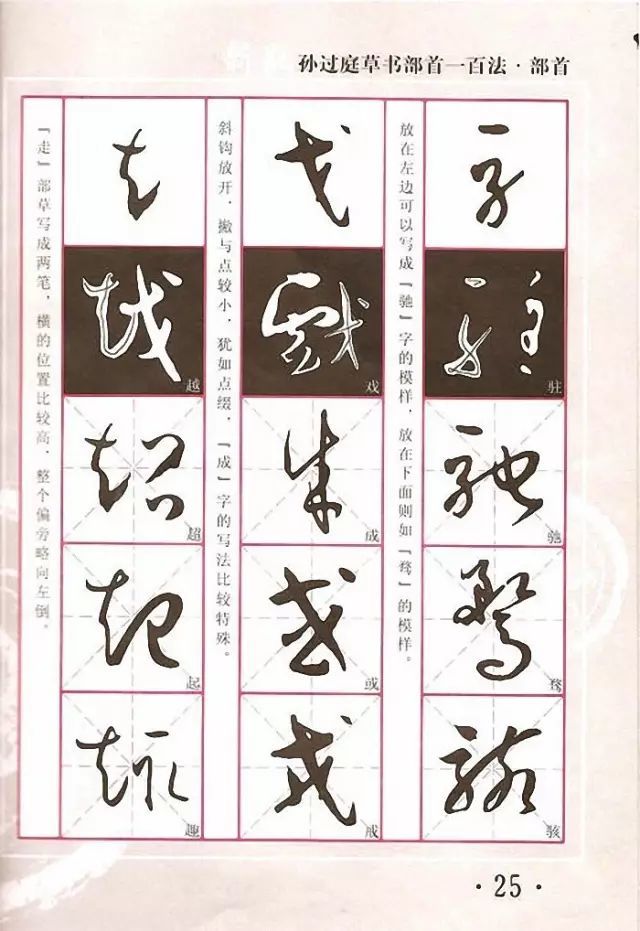 孙过庭草书部首一百法·部首
驻
驰
骛
骇
放在左边可以写成「驰」字的模样，放在下面则如「骛」的模样。
戏
成
或
戒
斜钩放开，撇与点较小，犹如点缀，「成」字的写法比较特殊。
越
超
起
趣
「走」部草写成两笔，横的位置比较高，整个偏旁略向左倒。
·25·